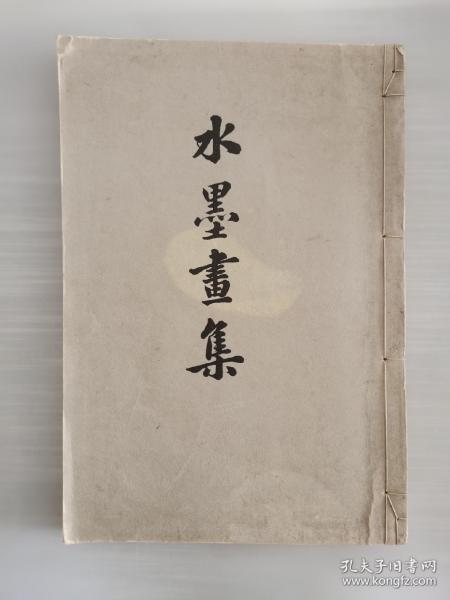 水墨畫集
孔夫子旧书网
www.kongfz.com